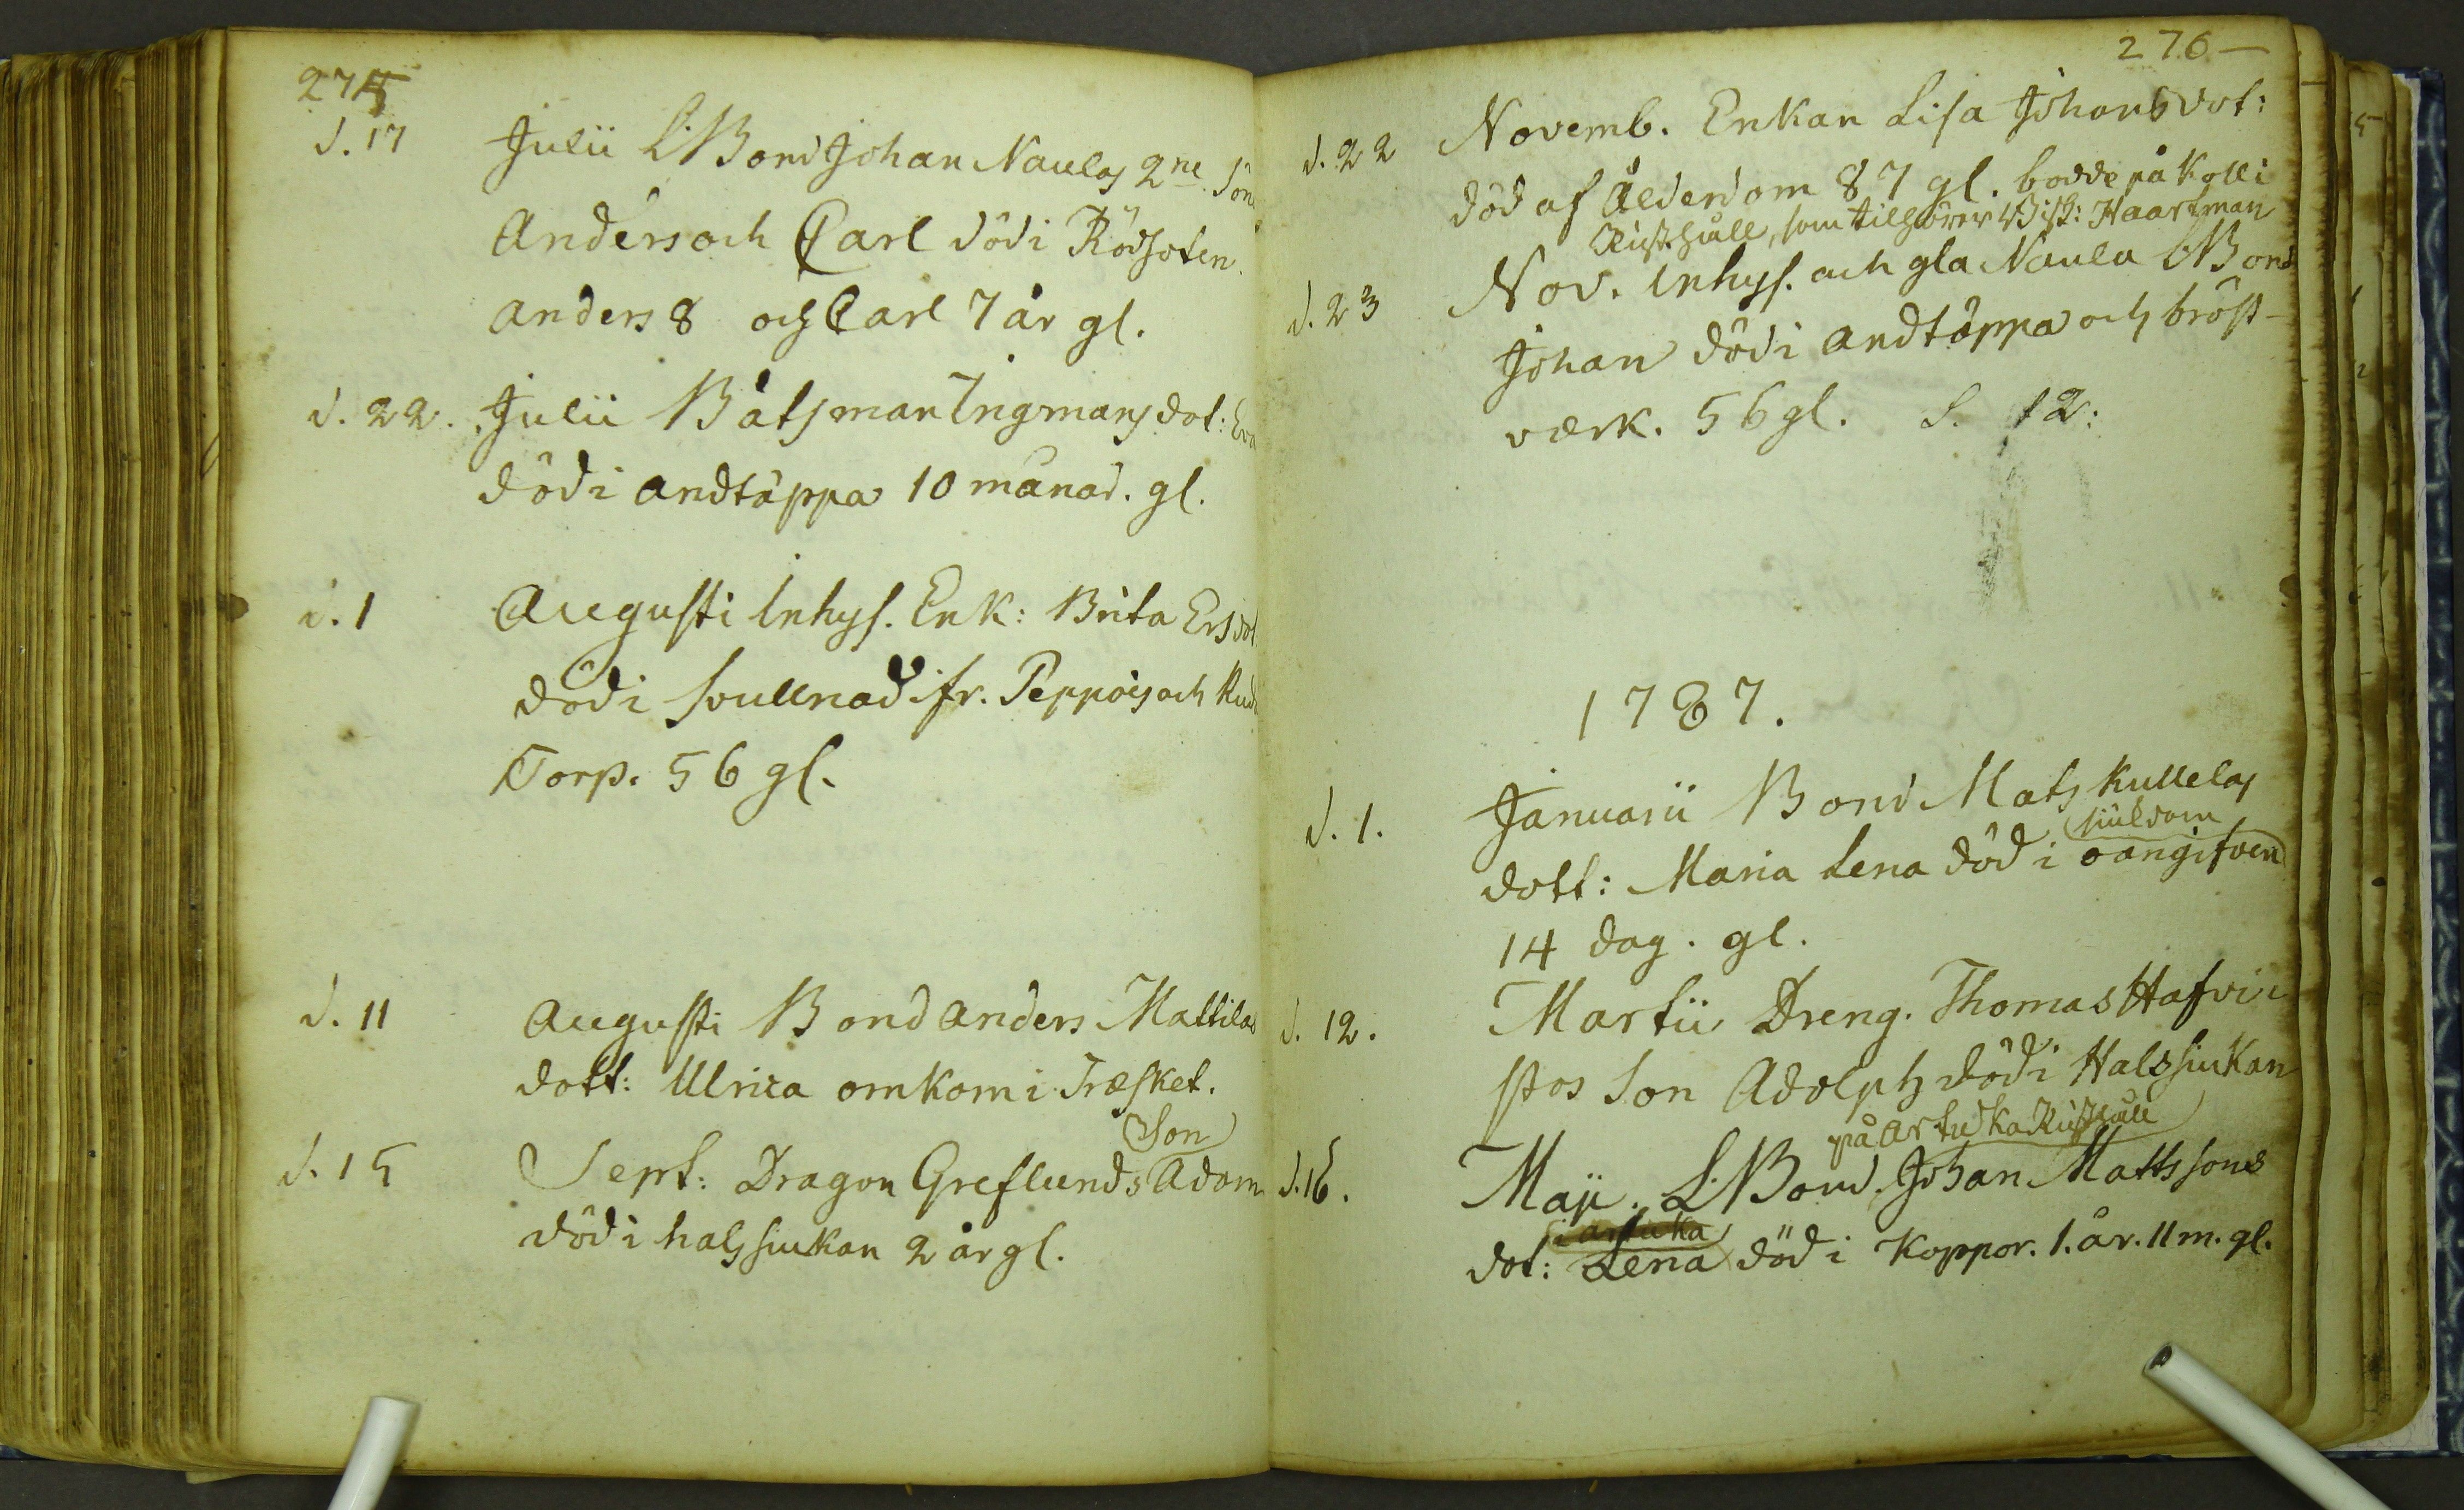 275
d. 17 Julii L: Bond Johan Naulas 2ne Sön
Anders och Carl död i Rödsoten.
Anders 8 och Carl 7 år gl.
d. 22. Julii Båtsman Ingmans dot: Eva
död i andtäppa 10 månad. gl.
d. 1 Augusti Inhys. Enk: Brita Ersdot
död i svullnad ifr. Peppois och
Torp. 56 gl.
d. 11 Augusti Bond Anders Mattilas
dott: Ulrica omkom i Træsket.
Son
d. 15 Sept: Dragon Greflunds Adam
död i halssiukan 2 år gl.
276
d. 22 Novemb. Enkan Lisa Johansdot:
död af Ålderdom 87 gl. bodde på Kolli
Rusthåll, som tillhörer Bisk: Haartman
d. 23 Nov. Inhys. och gla Naula L: Bond
Johan död i andtäppa och bröst-
værk. 56 gl. S. 12:
1787.
d. 1. Januarii Bond Mats Kullelas
siukdom
dott: Maria Lena död i oangifven
14 dag. gl.
d. 12. Martii Dreng. Thomas Hafvi
stos Son Adolph död i Halssiukan
på Artukka Rusthåll
d. 16. Maji. L: Bond. Johan Mattssons
i artuka
dot: Lena död i Koppor. 1. år. 11 m. gl.